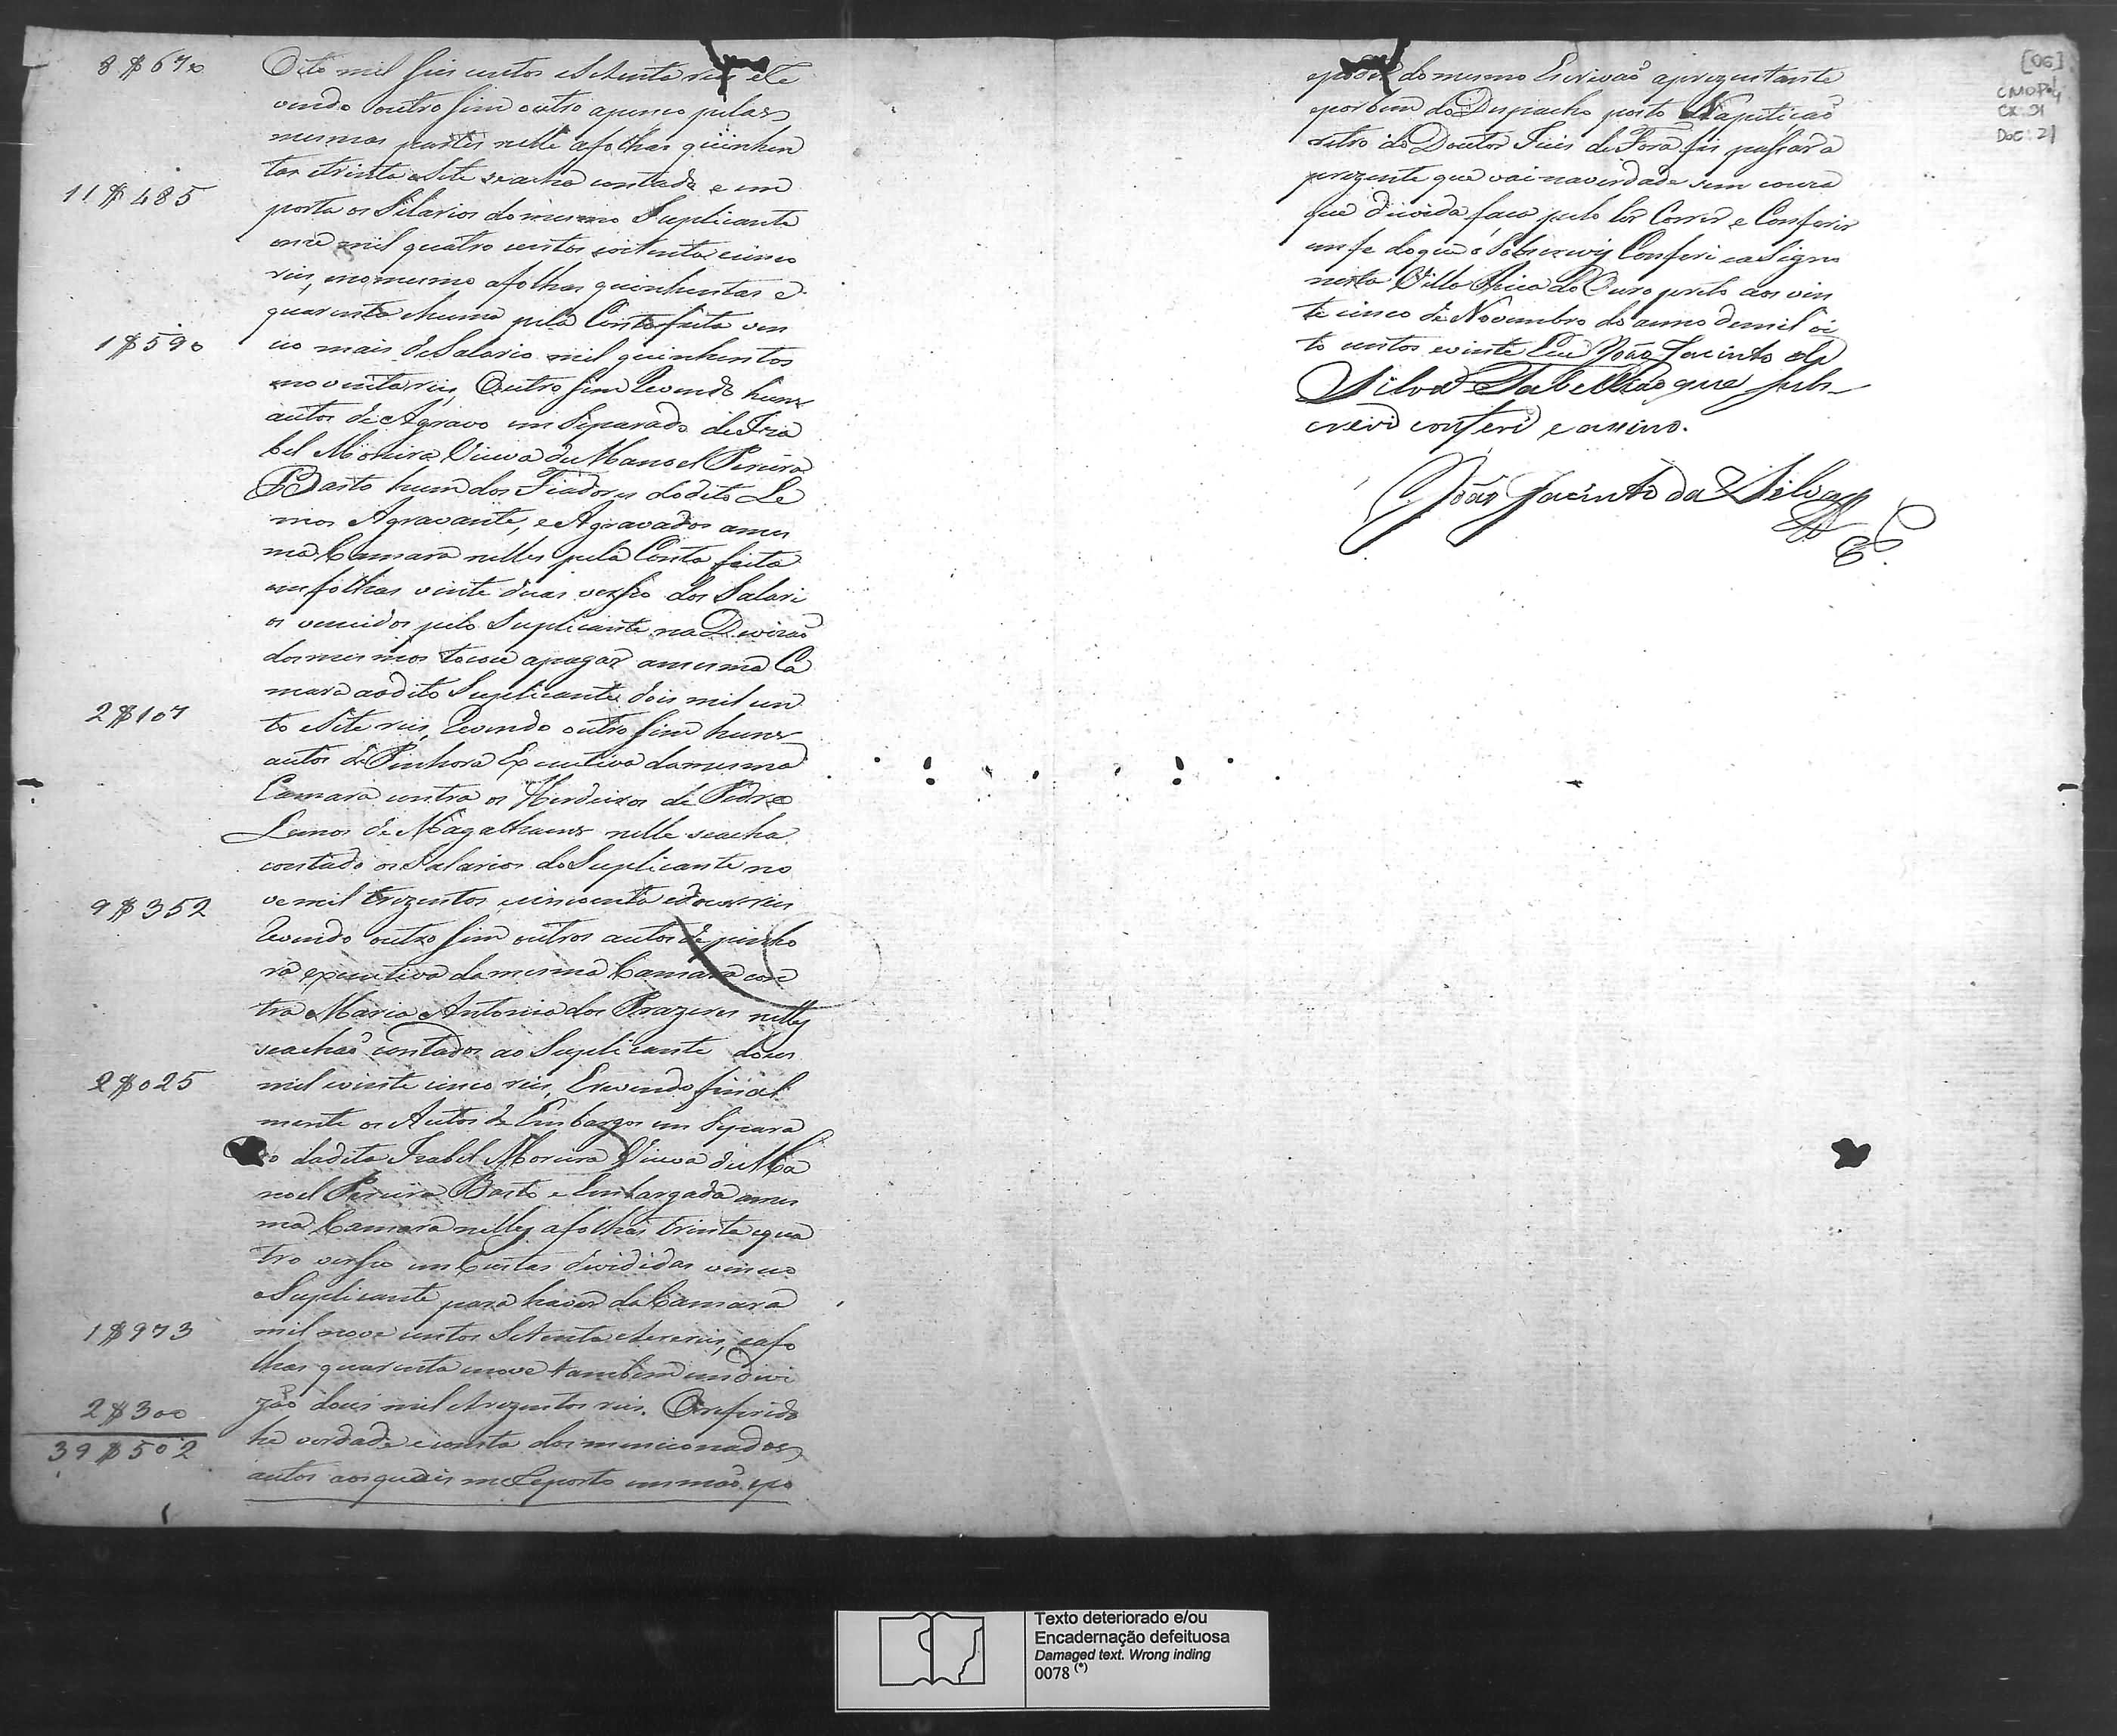 8$670
Oito mil seis centos setenta reis e le
vendo outro sim outro apenço pelas
mesmas partes nelle afolhas quinhen
tas etrinta eSete se acha contado e im
11$485
porta os Silarios do mesmo Suplicante
onze mil quatro centos eoitenta ecinco
reis, enomesmo afolhas quinhentas e
quarenta ehuma pela Conta feita ven
1$590
ceo mais deSalario mil quinhentos
enoventa reis, Outro sim Revendo huns
autos de Agravo em Separado de Iza
bel Moreira Viuva de Manoel Pereira
Basto hum dos Fiadores do dito Le
mos Agravante, e Agravados a mes
ma Camara nelles pela Conta feita
em folhas vinte duas verso dos Salari
os vencidos pelo Suplicante na Devizaõ
dos mesmos tocou apagar amesma Ca
mara ao dito Suplicante dois mil cen
2$107
to eSete reis, Revendo outro sim huns
autos de Pinhora Executiva da mesma
Camara contra os Herdeiros de Pedro
Lemos de Magalhaens nelle seacha
contado os Salarios do Suplicante no
9$352
ve mil trezentos ecincoenta edous reis
Revendo outro sim outros autos de pinho
ra executiva da mesma Camara con
tra Maria Antonia dos Prazeres nelles
seachaõ contados ao Suplicante dous
2$025
mil evinte cinco reis, Erevendo final
mente os Autos de Embargos em Separa
do dadita Izabel Moreira Viuva de Ma
noel Pereira Basto e Embargada a mes
ma Camara nelles afolhas trinta equa
tro verso em Custas divididas venceo
oSuplicante para haver da Camara
1$973
mil nove centos Setenta etres reis, eafo
lhas quarenta enove tambem em divi
2$300
zaõ dous mil etrezentos reis. O referido
39$502
he verdade econsta dos mencionados
autos aos quais me Reporto em maõ epo
epoder do mesmo Escrivaõ aprezentante
eporbem do Despacho posto Na petiçaõ
retro do Doutor Juis de Fora fis passar a
prezente que vai na verdade sem couza
que duvida faça pelo ler Correr e Conferir
em fe do que o Sobscrevy Conferi eaSigno
nesta Villa Rica do Ouro preto aos vin
te cinco de Novembro do anno demil oi
to centos evinte Eeu João Jacinto da
Silva Tabelliáo que subs-
crevi conferi e assino.
João Jacinto da Silva
[06]
CMOP
CX: 91
DOC: 21
Texto deteriorado e/ou
Encadernação defeituosa
Damaged text. Wrong inding
0078 (*)